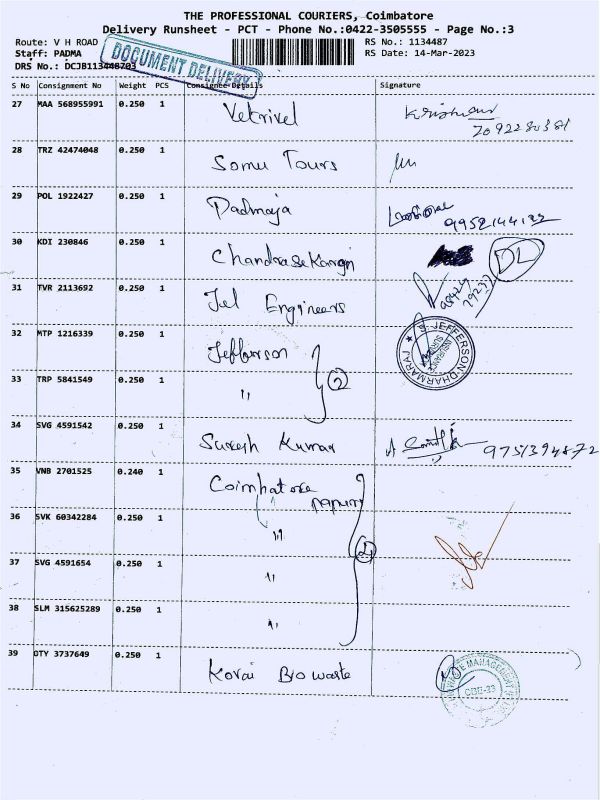 THE PROFESSIONAL COURIERS, Coimbatore
Delivery Runsheet - PCT - Phone No.:0422-3505555 - Page No.:3
Route: V H ROAD RS No.: 1134487
Staff: PADMA RS Date: 14-Mar-2023
DRS No.: DCJB113448703
DOCUMENT DELIVERY
S No Consignment No Weight PCS Consignee Details Signature
27 MAA 568955991 0.250 1 Vetrivel
7092280381
28 TRZ 42474048 0.250 1 Somu Tours
29 POL 1922427 0.250 1 Padmaja
9952144122
30 KDI 230846 0.250 1 Chandrasekaran DL
31 TVR 2113692 0.250 1 Jel Engineers
32 MTP 1216339 0.250 1 Jefferson
S. JEFFERSON DHARMARAJ
33 TRP 5841549 0.250 1 " 2
34 SVG 4591542 0.250 1 Suresh Kumar 9751394872
35 VNB 2701525 0.240 1 Coimbatore
36 SVK 60342284 0.250 1 "
37 SVG 4591654 0.250 1 " 4
38 SLM 315625289 0.250 1 "
39 OTY 3737649 0.250 1 Kovai Bio waste